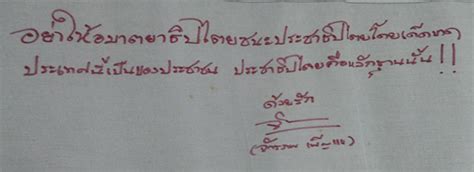 อย่าให้อมาตยาธิปไตยชนะประชาธิปไตยโดยเด็ดขาด
ประเทศนี้เป็นของประชาชน ประชาธิปไตยคือหลักฐานนั้น !!
ด้วยรัก
(จักรภพ เพ็ญแข)